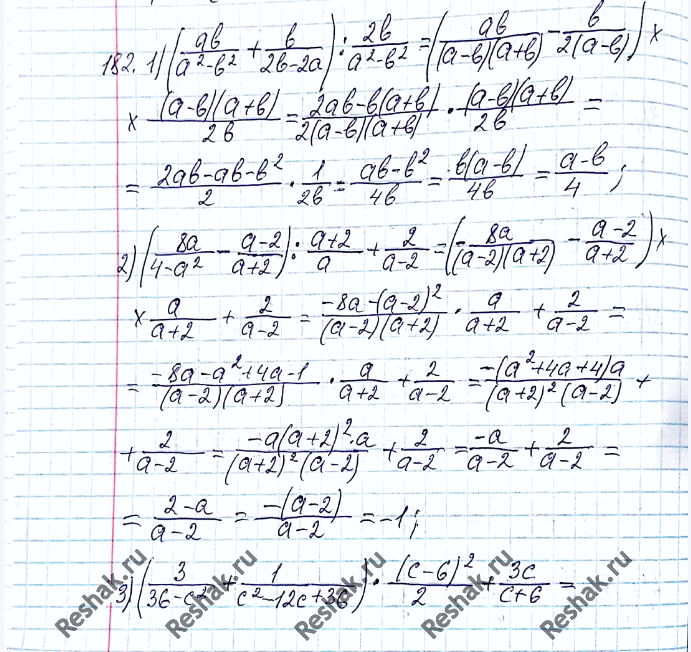 182. 1) (ab/(a²-b²) + b/(2b-2a)) : 2b/(a²-b²) = (ab/((a-b)(a+b)) - b/(2(a-b))) ×
× ((a-b)(a+b))/(2b) = (2ab-b(a+b))/(2(a-b)(a+b)) · ((a-b)(a+b))/(2b) =
= (2ab-ab-b²)/2 · 1/(2b) = (ab-b²)/(4b) = (b(a-b))/(4b) = (a-b)/4 ;
2) (8a/(4-a²) - (a-2)/(a+2)) : (a+2)/a + 2/(a-2) = (-8a/((a-2)(a+2)) - (a-2)/(a+2)) ×
× a/(a+2) + 2/(a-2) = (-8a-(a-2)²)/((a-2)(a+2)) · a/(a+2) + 2/(a-2) =
= (-8a-a²+4a-1)/((a-2)(a+2)) · a/(a+2) + 2/(a-2) = (-(a²+4a+4)a)/((a+2)²(a-2)) +
+ 2/(a-2) = (-a(a+2)²·a)/((a+2)²(a-2)) + 2/(a-2) = -a/(a-2) + 2/(a-2) =
= (2-a)/(a-2) = (-(a-2))/(a-2) = -1;
3) (3/(36-c²) + 1/(c²-12c+36)) · (c-6)²/2 + 3c/(c+6) =
Reshak.ru
Reshak.ru
Reshak.ru
Reshak.ru
Reshak.ru